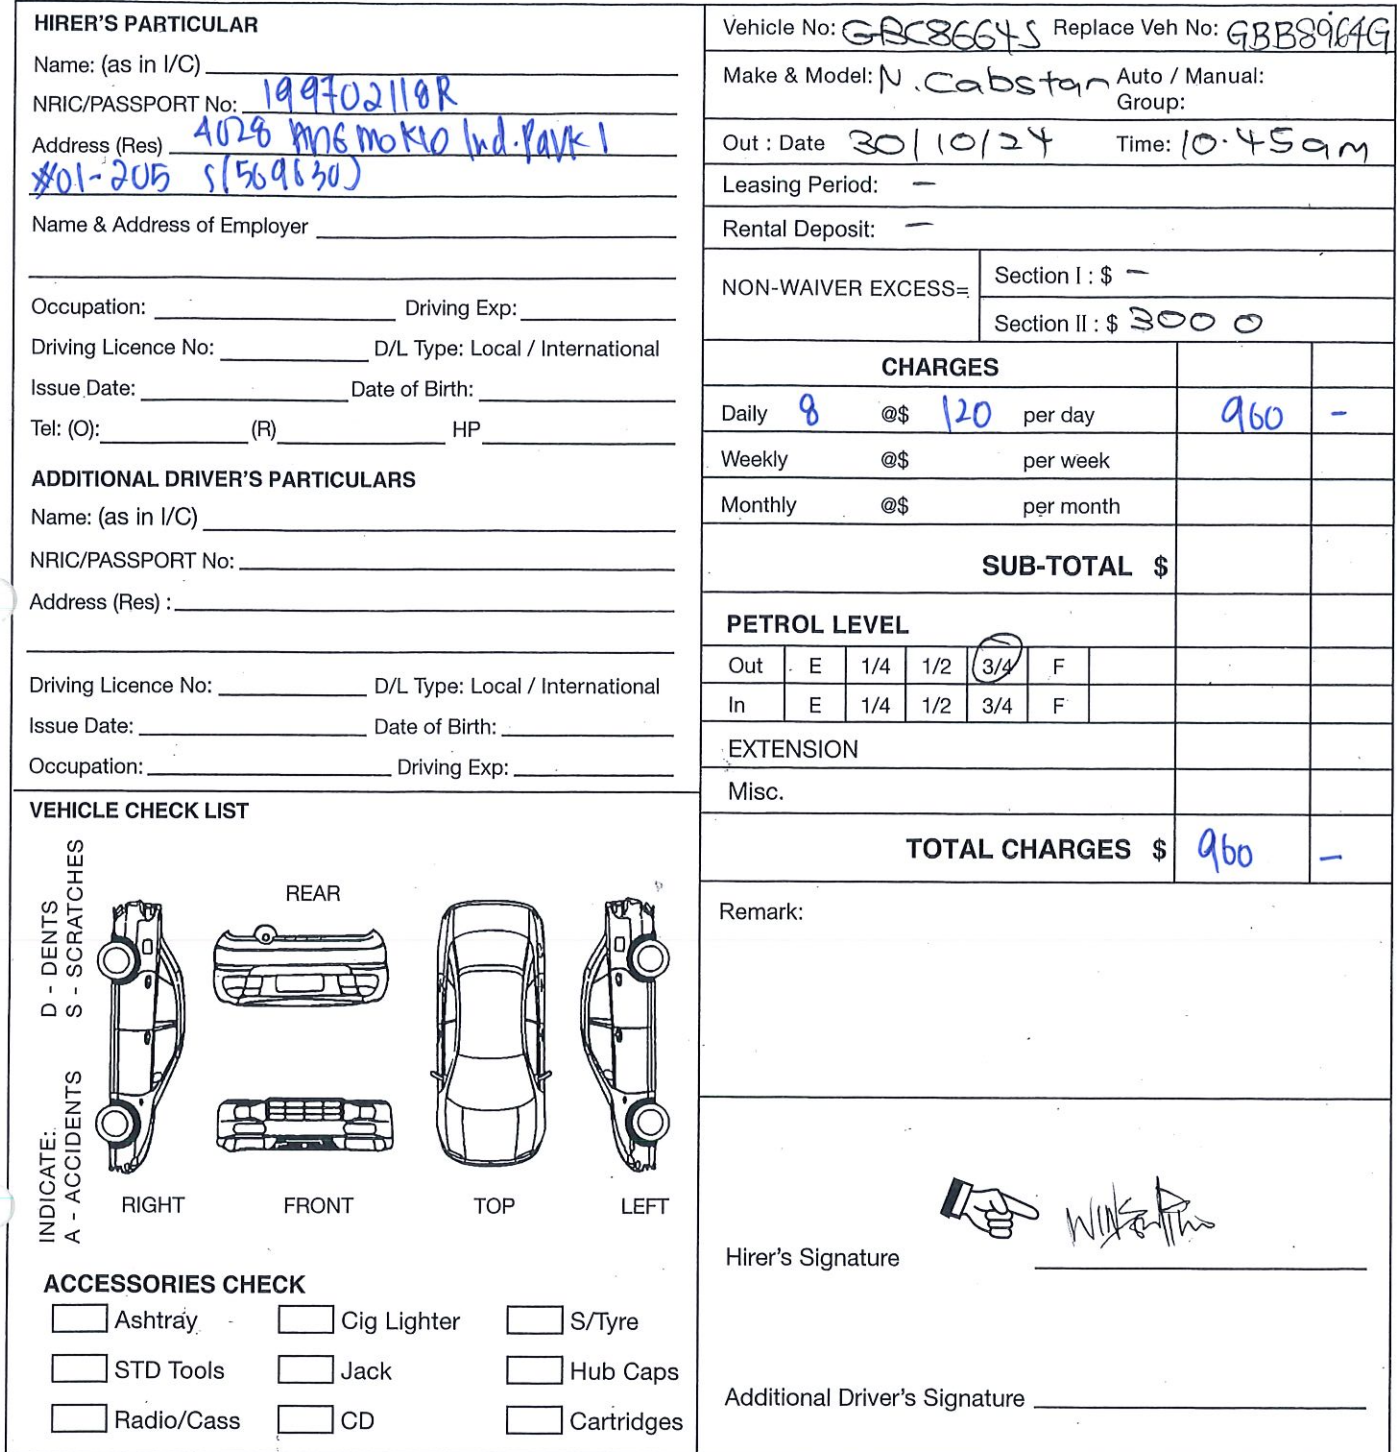 HIRER'S PARTICULAR
Name: (as in I/C)
NRIC/PASSPORT No: 199702118R
Address (Res) 4028 ANG MO KIO Ind. Park 1
#01-205 S(569630)
Name & Address of Employer
Occupation: Driving Exp:
Driving Licence No: D/L Type: Local / International
Issue Date: Date of Birth:
Tel: (O): (R) HP
ADDITIONAL DRIVER'S PARTICULARS
Name: (as in I/C)
NRIC/PASSPORT No:
Address (Res) :
Driving Licence No: D/L Type: Local / International
Issue Date: Date of Birth:
Occupation: Driving Exp:
VEHICLE CHECK LIST
INDICATE: D - DENTS
A - ACCIDENTS S - SCRATCHES
REAR
RIGHT FRONT TOP LEFT
ACCESSORIES CHECK
Ashtray Cig Lighter S/Tyre
STD Tools Jack Hub Caps
Radio/Cass CD Cartridges
Vehicle No: GBC8664S Replace Veh No: GBB8964G
Make & Model: N. Cabstar Auto / Manual:
Group:
Out : Date 30/10/24 Time: 10.45am
Leasing Period: -
Rental Deposit: -
NON-WAIVER EXCESS= Section I : $ -
Section II : $ 3000
CHARGES
Daily 8 @$ 120 per day 960 -
Weekly @$ per week
Monthly @$ per month
SUB-TOTAL $
PETROL LEVEL
Out E 1/4 1/2 3/4 F
In E 1/4 1/2 3/4 F
EXTENSION
Misc.
TOTAL CHARGES $ 960 -
Remark:
Hirer's Signature
Additional Driver's Signature